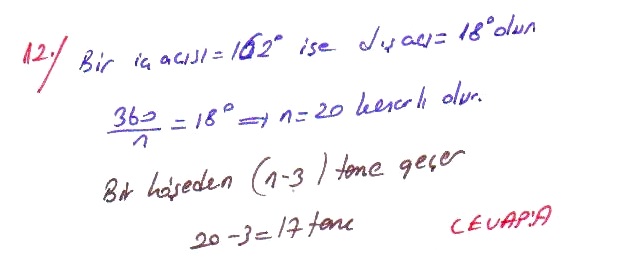 12-/ Bir iç açısı = 162° ise dış açı = 18° olur
360/n = 18° ⇒ n = 20 kenarlı olur.
Bir köşeden (n-3) tane geçer
20-3 = 17 tane
CEVAP:A